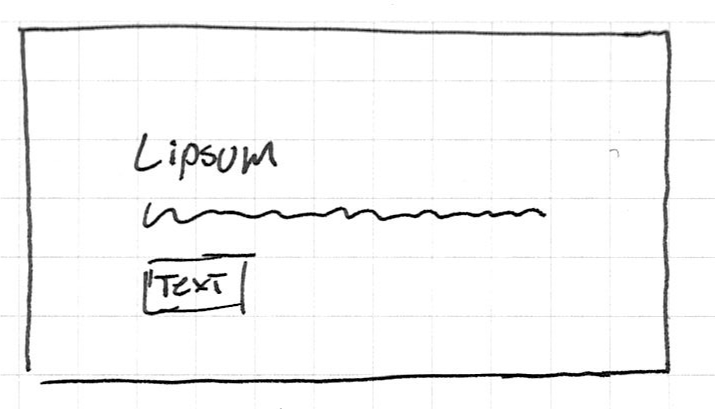 Lipsum
Text